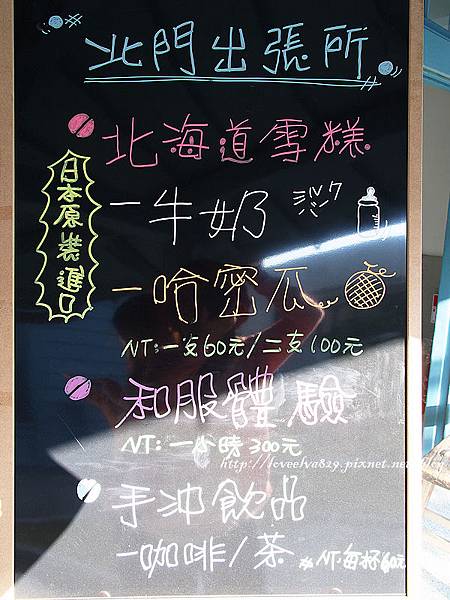 北門出張所
北海道雪糕
日本原裝進口
一牛奶 ミルク
一哈密瓜
NT:一支60元/二支100元
和服體驗
NT:一小時300元
手沖飲品
一咖啡/茶 *NT:每杯60元